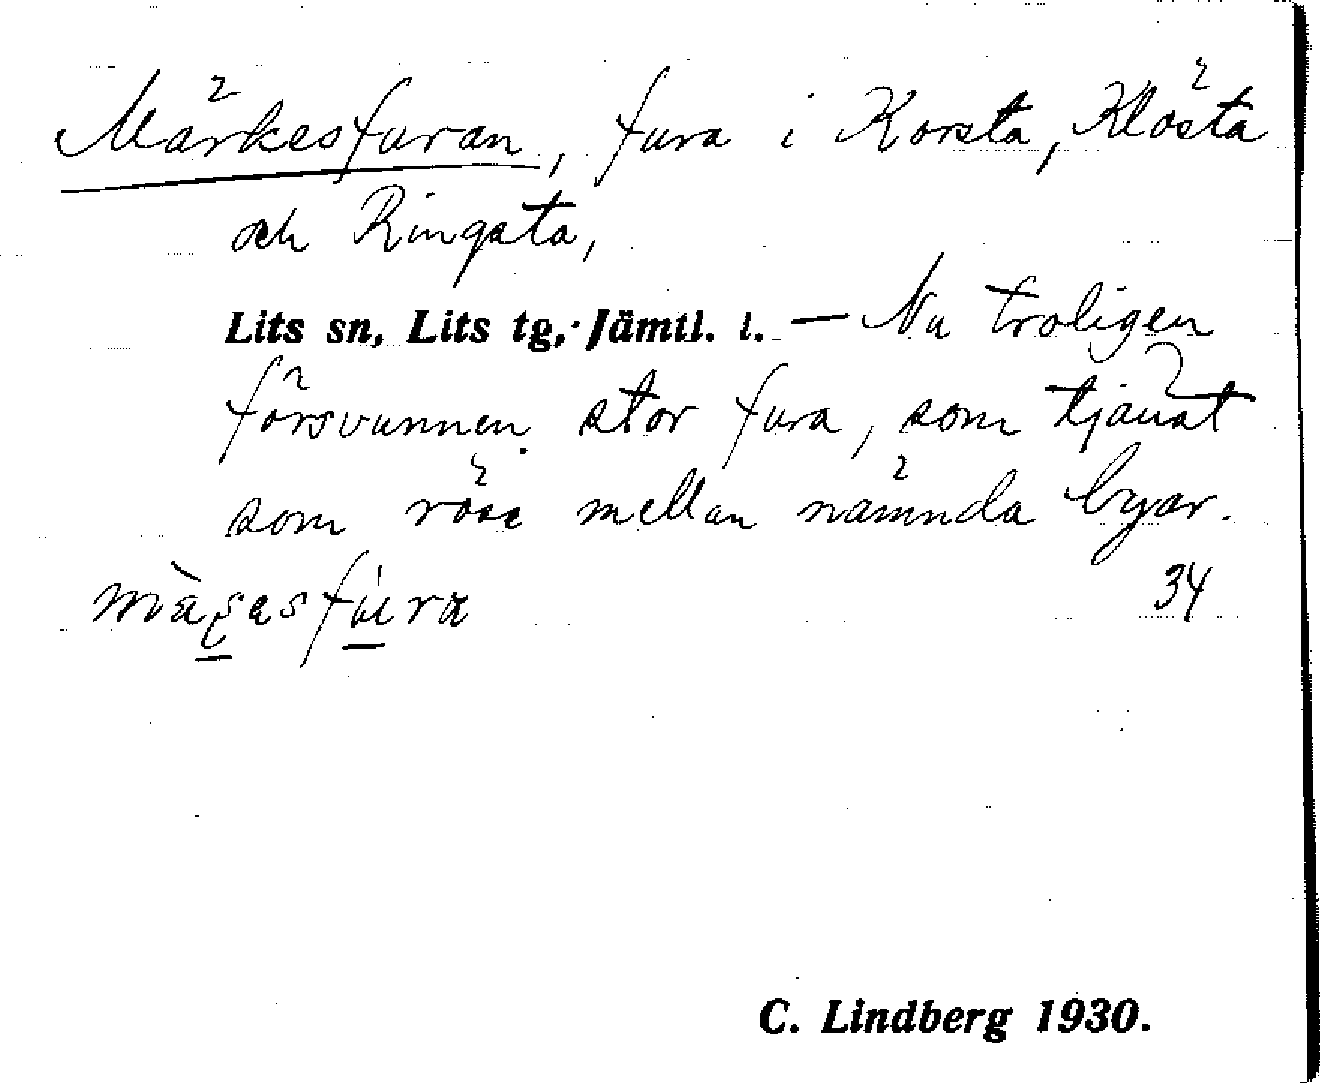 Märkesfuran, fura i Korsta, Klösta
och Ringsta,
Lits sn, Lits tg, Jämtl. l. — Nu troligen
försvunnen stor fura, som tjänat
som röse mellan nämnda byar.
34
C. Lindberg 1930.